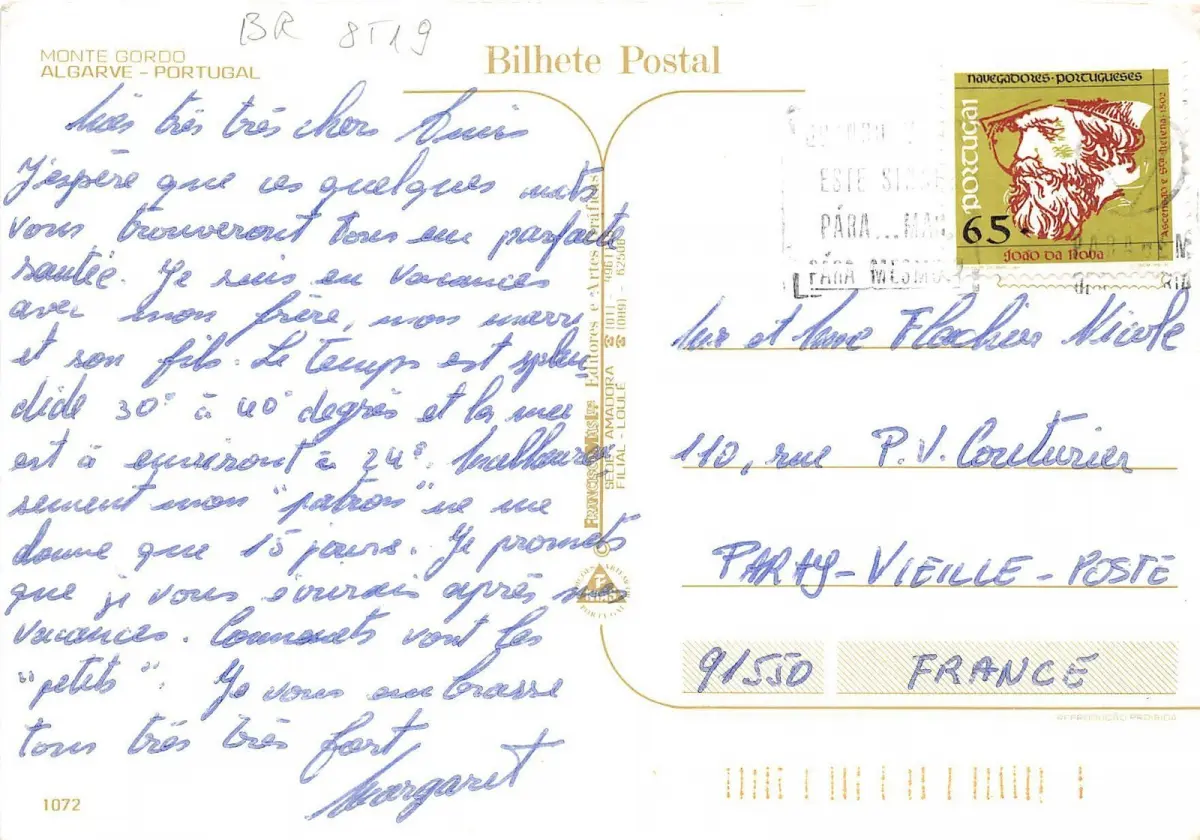 BR 8519
MONTE GORDO
ALGARVE - PORTUGAL
Bilhete Postal
Mes très très chers Amis
J'espère que ces quelques mots
vous trouveront tous en parfaite
santée. Je suis en vacances
avec mon frère, mon marri
et son fils. Le temps est splen
dide 30° à 40° degrès et la mer
est à environt à 24°. Malheureu
sement mon "patron" ne me
donne que 15 jours. Je promets
que je vous écrirais après mes
vacances. Comments vont les
"petits". Je vous embrasse
tous très très fort
Margaret
1072
FRANCISCO MAS Lda Editores e Artes Gráficas
SEDE AMADORA
FILIAL - LOULÉ
NAVEGADORES·PORTUGUESES
PORTUGAL
Ascensão e Sta. Helena·1502
65·
JOÃO DA NOVA
ESTE
PÁRA...
PÁRA MESMO
Mr et Mme Flachier Nicole
110, rue P.V. Couturier
PARAY-VIEILLE-POSTE
91550 FRANCE
REPRODUÇÃO PROIBIDA